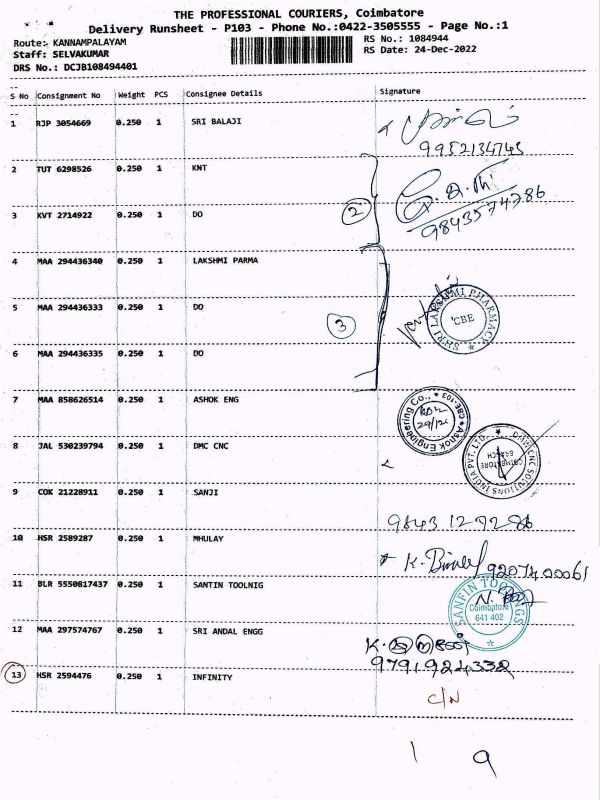 THE PROFESSIONAL COURIERS, Coimbatore
Delivery Runsheet - P103 - Phone No.:0422-3505555 - Page No.:1
Route: KANNAMPALAYAM RS No.: 1084944
Staff: SELVAKUMAR RS Date: 24-Dec-2022
DRS No.: DCJB108494401
S No Consignment No Weight PCS Consignee Details Signature
1 RJP 3054669 0.250 1 SRI BALAJI
9952134745
2 TUT 6298526 0.250 1 KNT
3 KVT 2714922 0.250 1 DO 2 9843574786
4 MAA 294436340 0.250 1 LAKSHMI PARMA
5 MAA 294436333 0.250 1 DO 3 SHRI LAKSHMI PHARMACY CBE
6 MAA 294436335 0.250 1 DO
7 MAA 858626514 0.250 1 ASHOK ENG Ashok Engineering Co., CBE-103
8 JAL 530239794 0.250 1 DMC CNC DMM CNC SOLUTIONS INDIA PVT. LTD. COIMBATORE BRANCH
9 COK 21228911 0.250 1 SANJI
9843127286
10 HSR 2589287 0.250 1 MHULAY
9207400061
11 BLR 5550817437 0.250 1 SANTIN TOOLNIG SANFIN TOOLINGS Coimbatore 641 402
12 MAA 297574767 0.250 1 SRI ANDAL ENGG
9791924332
13 HSR 2594476 0.250 1 INFINITY
C/N
1 9